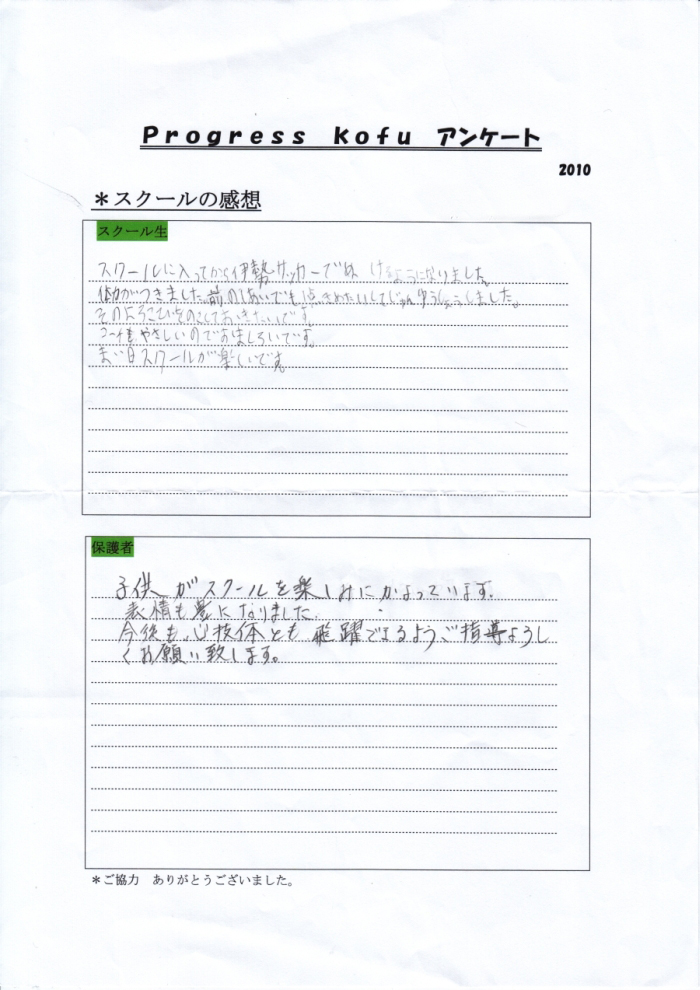 Progress Kofu アンケート
2010
＊スクールの感想
スクール生
スクールに入ってから伊勢サッカーでぬけるようになりました。
体力がつきました。前のしあいでも1点きめたいしてじゅんゆうしょうしました。
そのよろこびをのこしておきたいです。
コーチもやさしいのでおもしろいです。
まい日スクールが楽しいです。
保護者
子供がスクールを楽しみにかよっています。
表情も豊になりました。
今後も、心技体とも飛躍でよるようご指導よろし
くお願い致します。
＊ご協力　ありがとうございました。